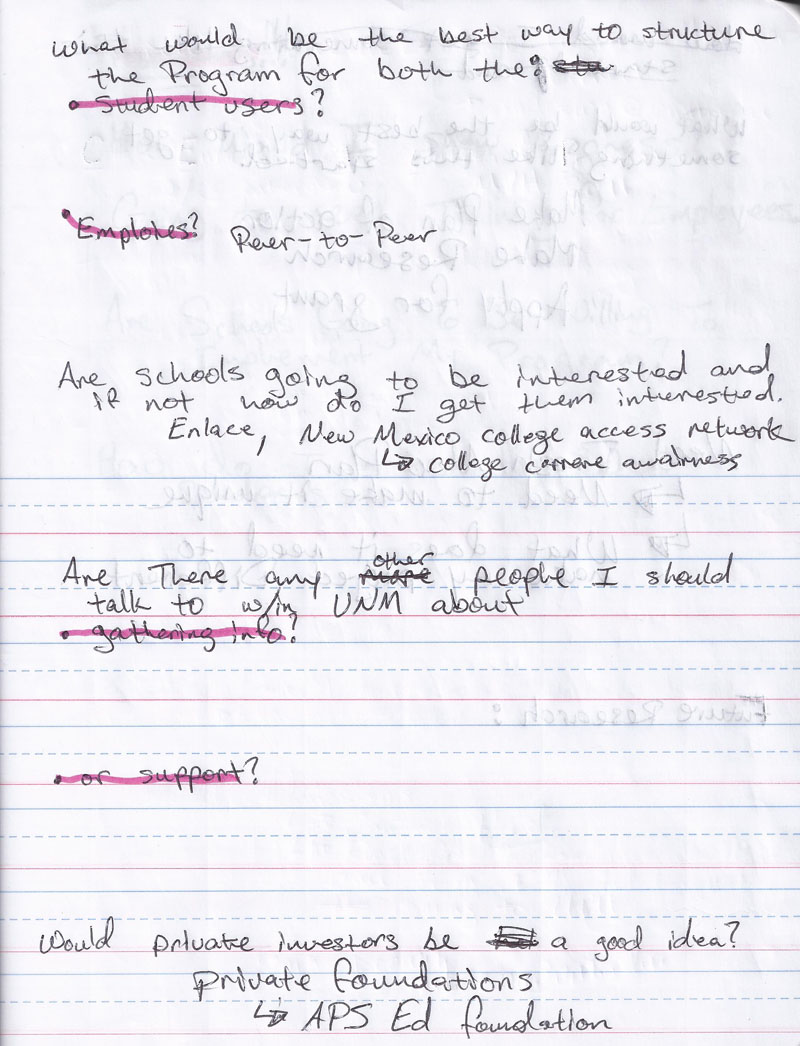 What would be the best way to structure
the Program for both the:
• Student users?
• Employes? Peer-to-Peer
Are schools going to be interested and
if not how do I get them interested.
Enlace, New Mexico college access network
↳ college carrere awairness
Are There any other people I should
talk to w/in UNM about
• gathering info?
• or support?
Would private investors be a good idea?
private foundations
↳ APS Ed foundation